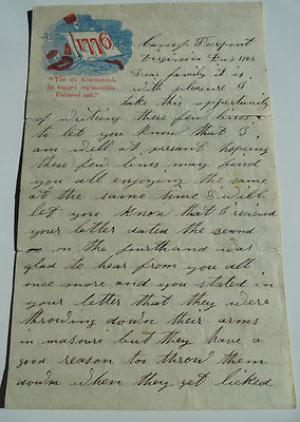 1776
"The old Continentals,
In ragged regimentals
Faltered not."
Camp Pierpont
Virginia
Dear family it is
with pleasure I
take this oppertunity
of writing these few lines
to let you know that I
am well at present hopeing
these few lines may find
you all enjoying the same
at the same time I will
let you know that I received
your letter dated the second
on the fourth and was
glad to hear from you all
once more and you stated in
your letter that they were
throwing down their arms
in but they have a
good reason too throw them
down when they get licked